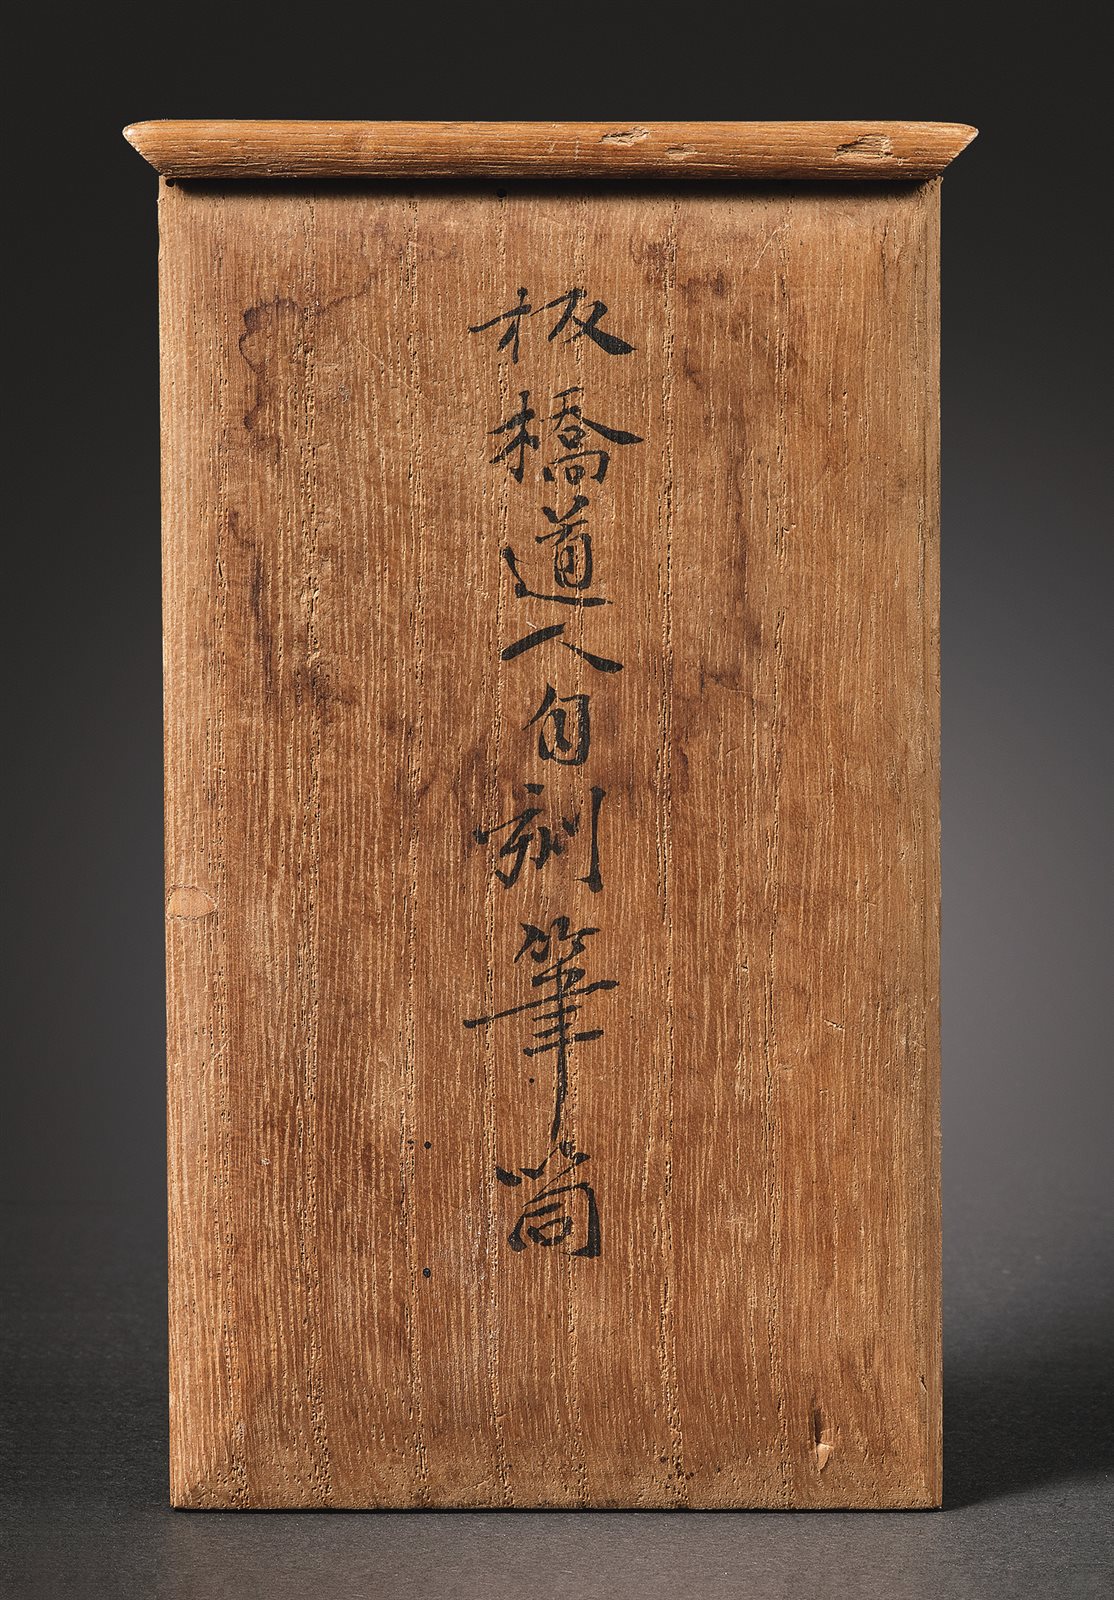 板橋道人自刻筆筒